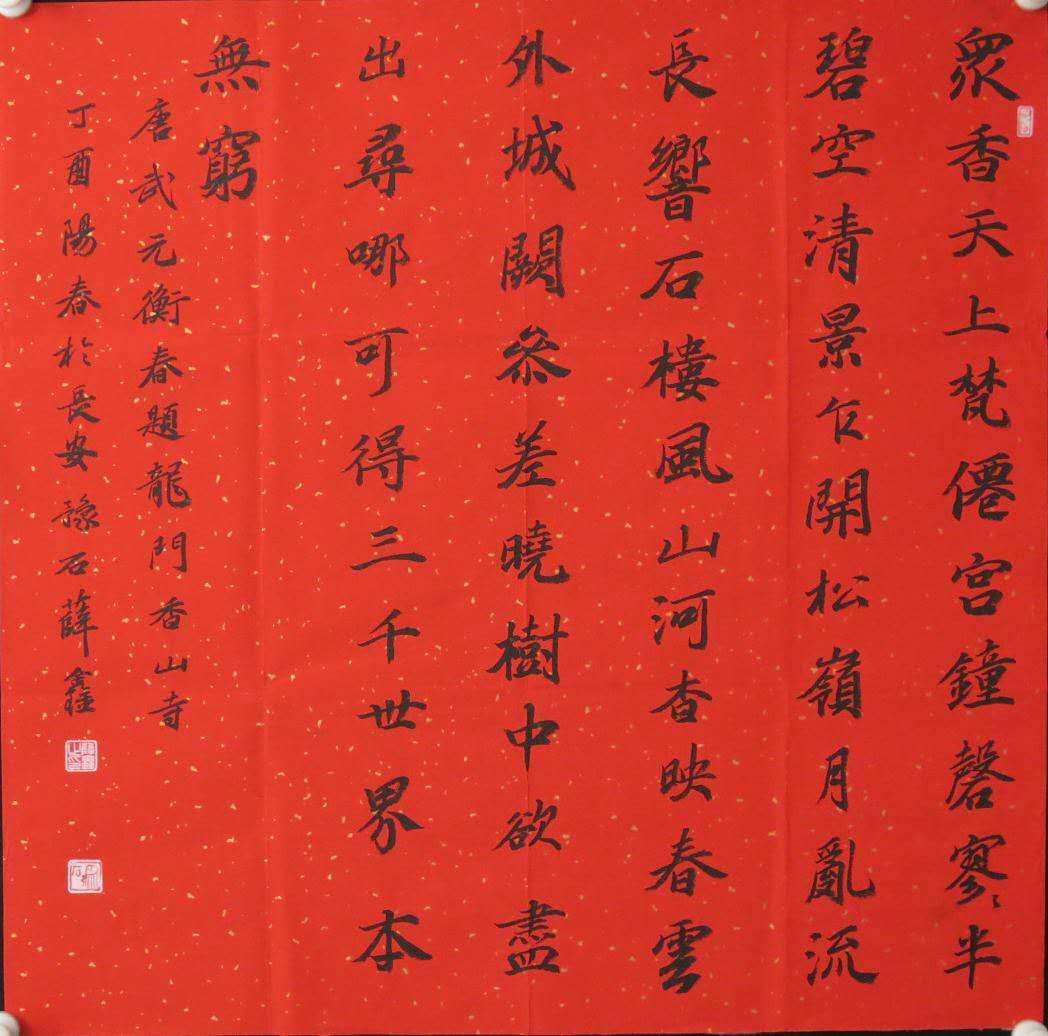 眾香天上梵僊宮鐘磬寥〻半
碧空清景乍開松嶺月亂流
長響石樓風山河杳映春雲
外城闕參差曉樹中欲盡
出尋哪可得三千世界本
無窮
唐武元衡春題龍門香山寺
丁酉陽春於長安豫石薛鑫